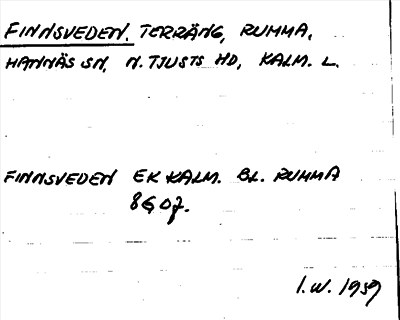 FINNSVEDEN. TERRÄNG, RUMMA,
HANNÄS SN, N. TJUSTS HD, KALM. L.
FINNSVEDEN EK KALM. BL. RUMMA
8G 0J.
I.W. 1959